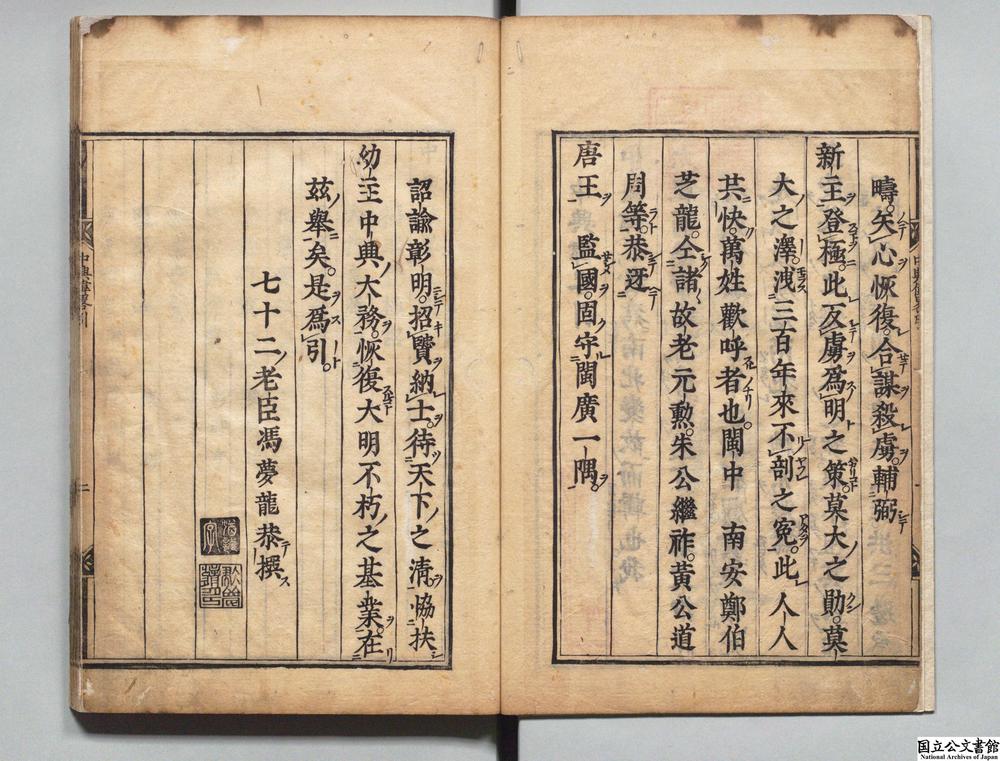 疇。矢心恢復。合謀殺虜。輔弼
新主登極。此反虜爲明之策。莫大之勛。莫
大之澤。洩三百年來不剖之寃。此人人
共快。萬姓歡呼者也。閩中 南安鄭伯
芝龍。仝諸故老元勲。朱公繼祚。黄公道
周等。恭迓
唐王監國。固守閩廣一隅。
詔諭彰明。招賢納士。待天下之清。恊扶
幼主中興大務。恢復大明不朽之基業。在
玆舉矣。是爲引。
七十二老臣馮夢龍恭撰
中興偉畧引
二
国立公文書館
National Archives of Japan